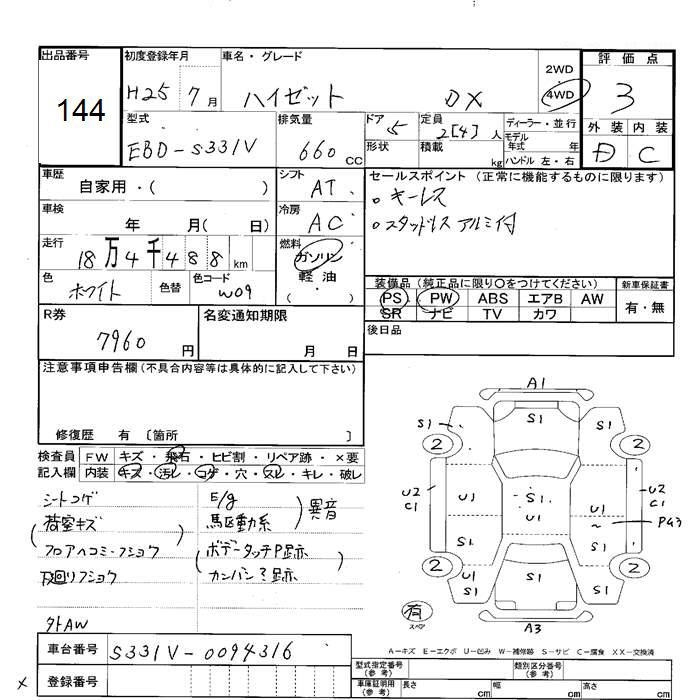 出品番号
144
初度登録年月
H25 7月
車名・グレード
ハイゼット DX
2WD
4WD
評価点
3
外装 内装
D C
型式
EBD-S331V
排気量
660 CC
ドア 5
形状
定員
2[4]人
積載 kg
ディーラー・並行
モデル
年式 年
ハンドル 左・右
車歴
自家用・( )
シフト
AT
セールスポイント (正常に機能するものに限ります)
。キーレス
。スタッドレス アルミ付
車検
年 月( 日)
冷房
AC
走行
18万4千488km
燃料
ガソリン
軽油
( )
色
ホワイト
色替
色コード
W09
装備品 (純正品に限り〇をつけてください)
新車保証書
PS PW ABS エアB AW
SR ナビ TV カワ
有・無
R券
7960円
名変通知期限
月 日
後日品
注意事項申告欄(不具合内容等は具体的に記入して下さい)
修復歴 有 〔箇所 〕
検査員
記入欄
FW キズ・飛石・ヒビ割・リペア跡・×要
内装 キズ・汚レ・コゲ・穴・スレ・キレ・破レ
シートコゲ
荷室キズ
フロアヘコミ・フショウ
下廻りフショウ
外AW
E/g
馬区動系
異音
ボデータッチP跡
カンバンミ跡
A1
S1
S1 S1
2 2
U2
C1
U1
S1
U1
U1
~
U2
C1
PG3
S1 S1
2 2
U1
S1
S1
S1
有
スペア
A3
A-キズ E-エクボ U-凹み W-補修跡 S-サビ C-腐食 XX-交換済
車台番号
S331V-0094316
× 登録番号
型式指定番号
(参考)
類別区分番号
(参考)
車庫証明用
(参考)
長さ cm
幅 cm
高さ cm